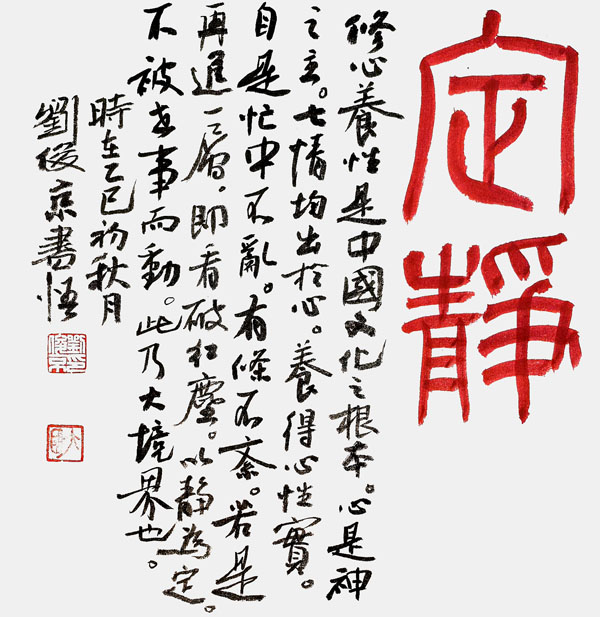 定靜
修心養性是中國文化之根本。心是神
之主。七情均出於心。養得心性實。
自是忙中不亂。有條不紊。若是
再進一層，即看破紅塵。以靜為定。
不被世事而動。此乃大境界也。
時在乙巳初秋月
劉俊京書悟